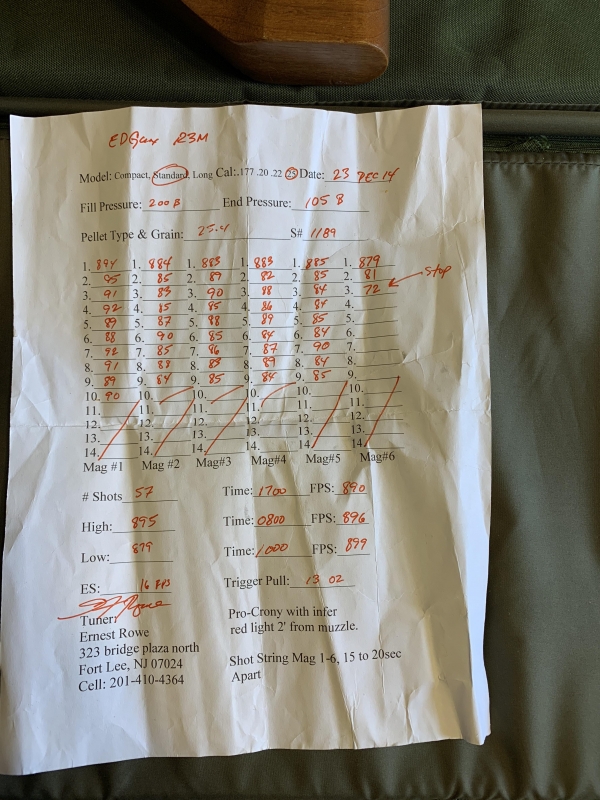 EDgun R3M
Model: Compact, Standard, Long Cal:.177 .20 .22 25 Date: 23 DEC 14
Fill Pressure: 200 B End Pressure: 105 B
Pellet Type & Grain: 25.4 S# 1189
1. 894 1. 884 1. 883 1. 883 1. 885 1. 879
2. 95 2. 85 2. 89 2. 82 2. 85 2. 81 Stop
3. 91 3. 83 3. 90 3. 88 3. 84 3. 72
4. 92 4. 85 4. 85 4. 86 4. 84 4.
5. 89 5. 87 5. 88 5. 89 5. 85 5.
6. 88 6. 90 6. 85 6. 84 6. 84 6.
7. 92 7. 85 7. 86 7. 87 7. 90 7.
8. 91 8. 88 8. 88 8. 89 8. 84 8.
9. 89 9. 84 9. 85 9. 84 9. 85 9.
10. 90 10. 10. 10. 10. 10.
11. 11. 11. 11. 11. 11.
12. 12. 12. 12. 12. 12.
13. 13. 13. 13. 13. 13.
14. 14. 14. 14. 14. 14.
Mag #1 Mag #2 Mag#3 Mag#4 Mag#5 Mag#6
# Shots 57 Time: 1700 FPS: 890
High: 895 Time: 0800 FPS: 896
Low: 879 Time: 1000 FPS: 899
ES: 16 FPS Trigger Pull: 13 02
Tuner:
Ernest Rowe
323 bridge plaza north
Fort Lee, NJ 07024
Cell: 201-410-4364
Pro-Crony with infer
red light 2' from muzzle.
Shot String Mag 1-6, 15 to 20sec
Apart